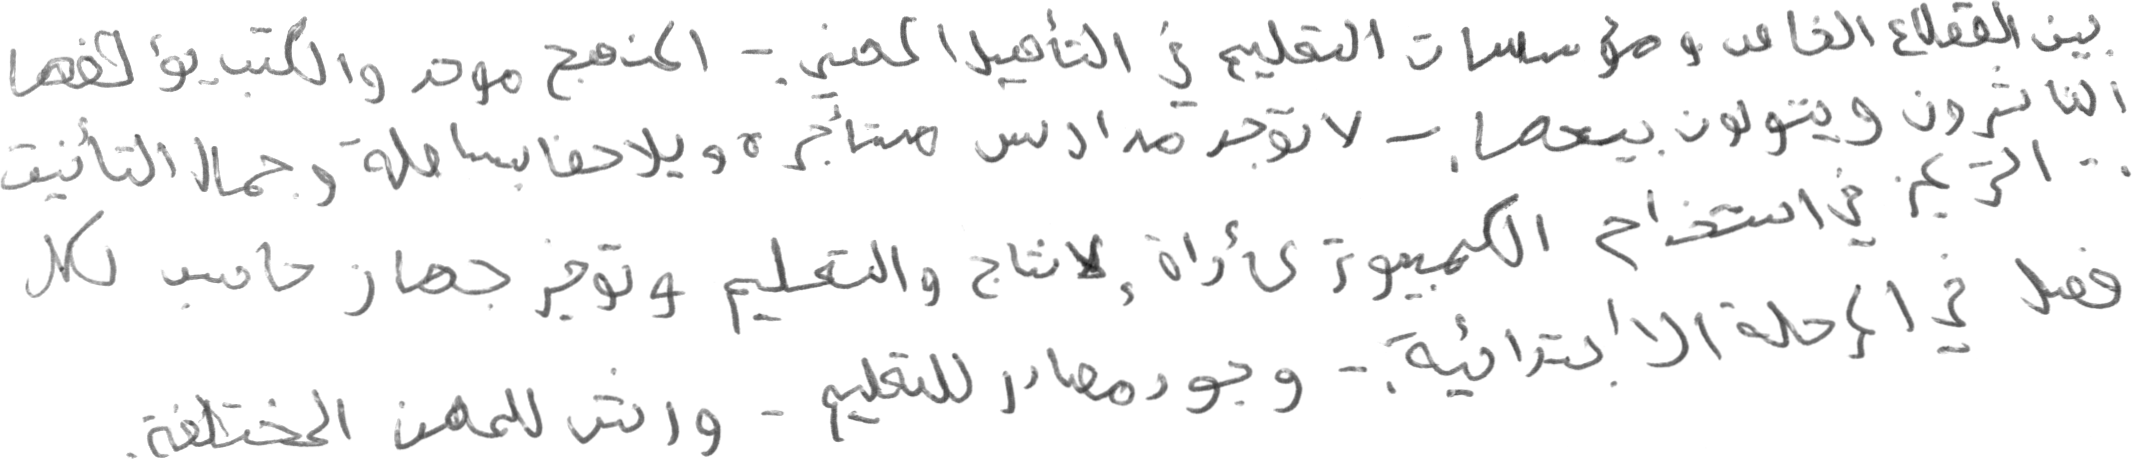 بين القطاع الخاص ومؤسسات التعليم في التأهيل المهني. - المنهج موحد والكتب يؤلفها
الناشرون ويتولون بيعها. - لا توجد مدارس مستأجره ويلاحظ بساطة وجمال التأثيث
.- التركيز في استخدام الكمبيوتر كأداة لإنتاج والتعليم وتوفير جهاز حاسب لكل
فصل في المرحلة الأبتدائية. - وجود مصادر للتعليم - ورش للمهن المختلفة.